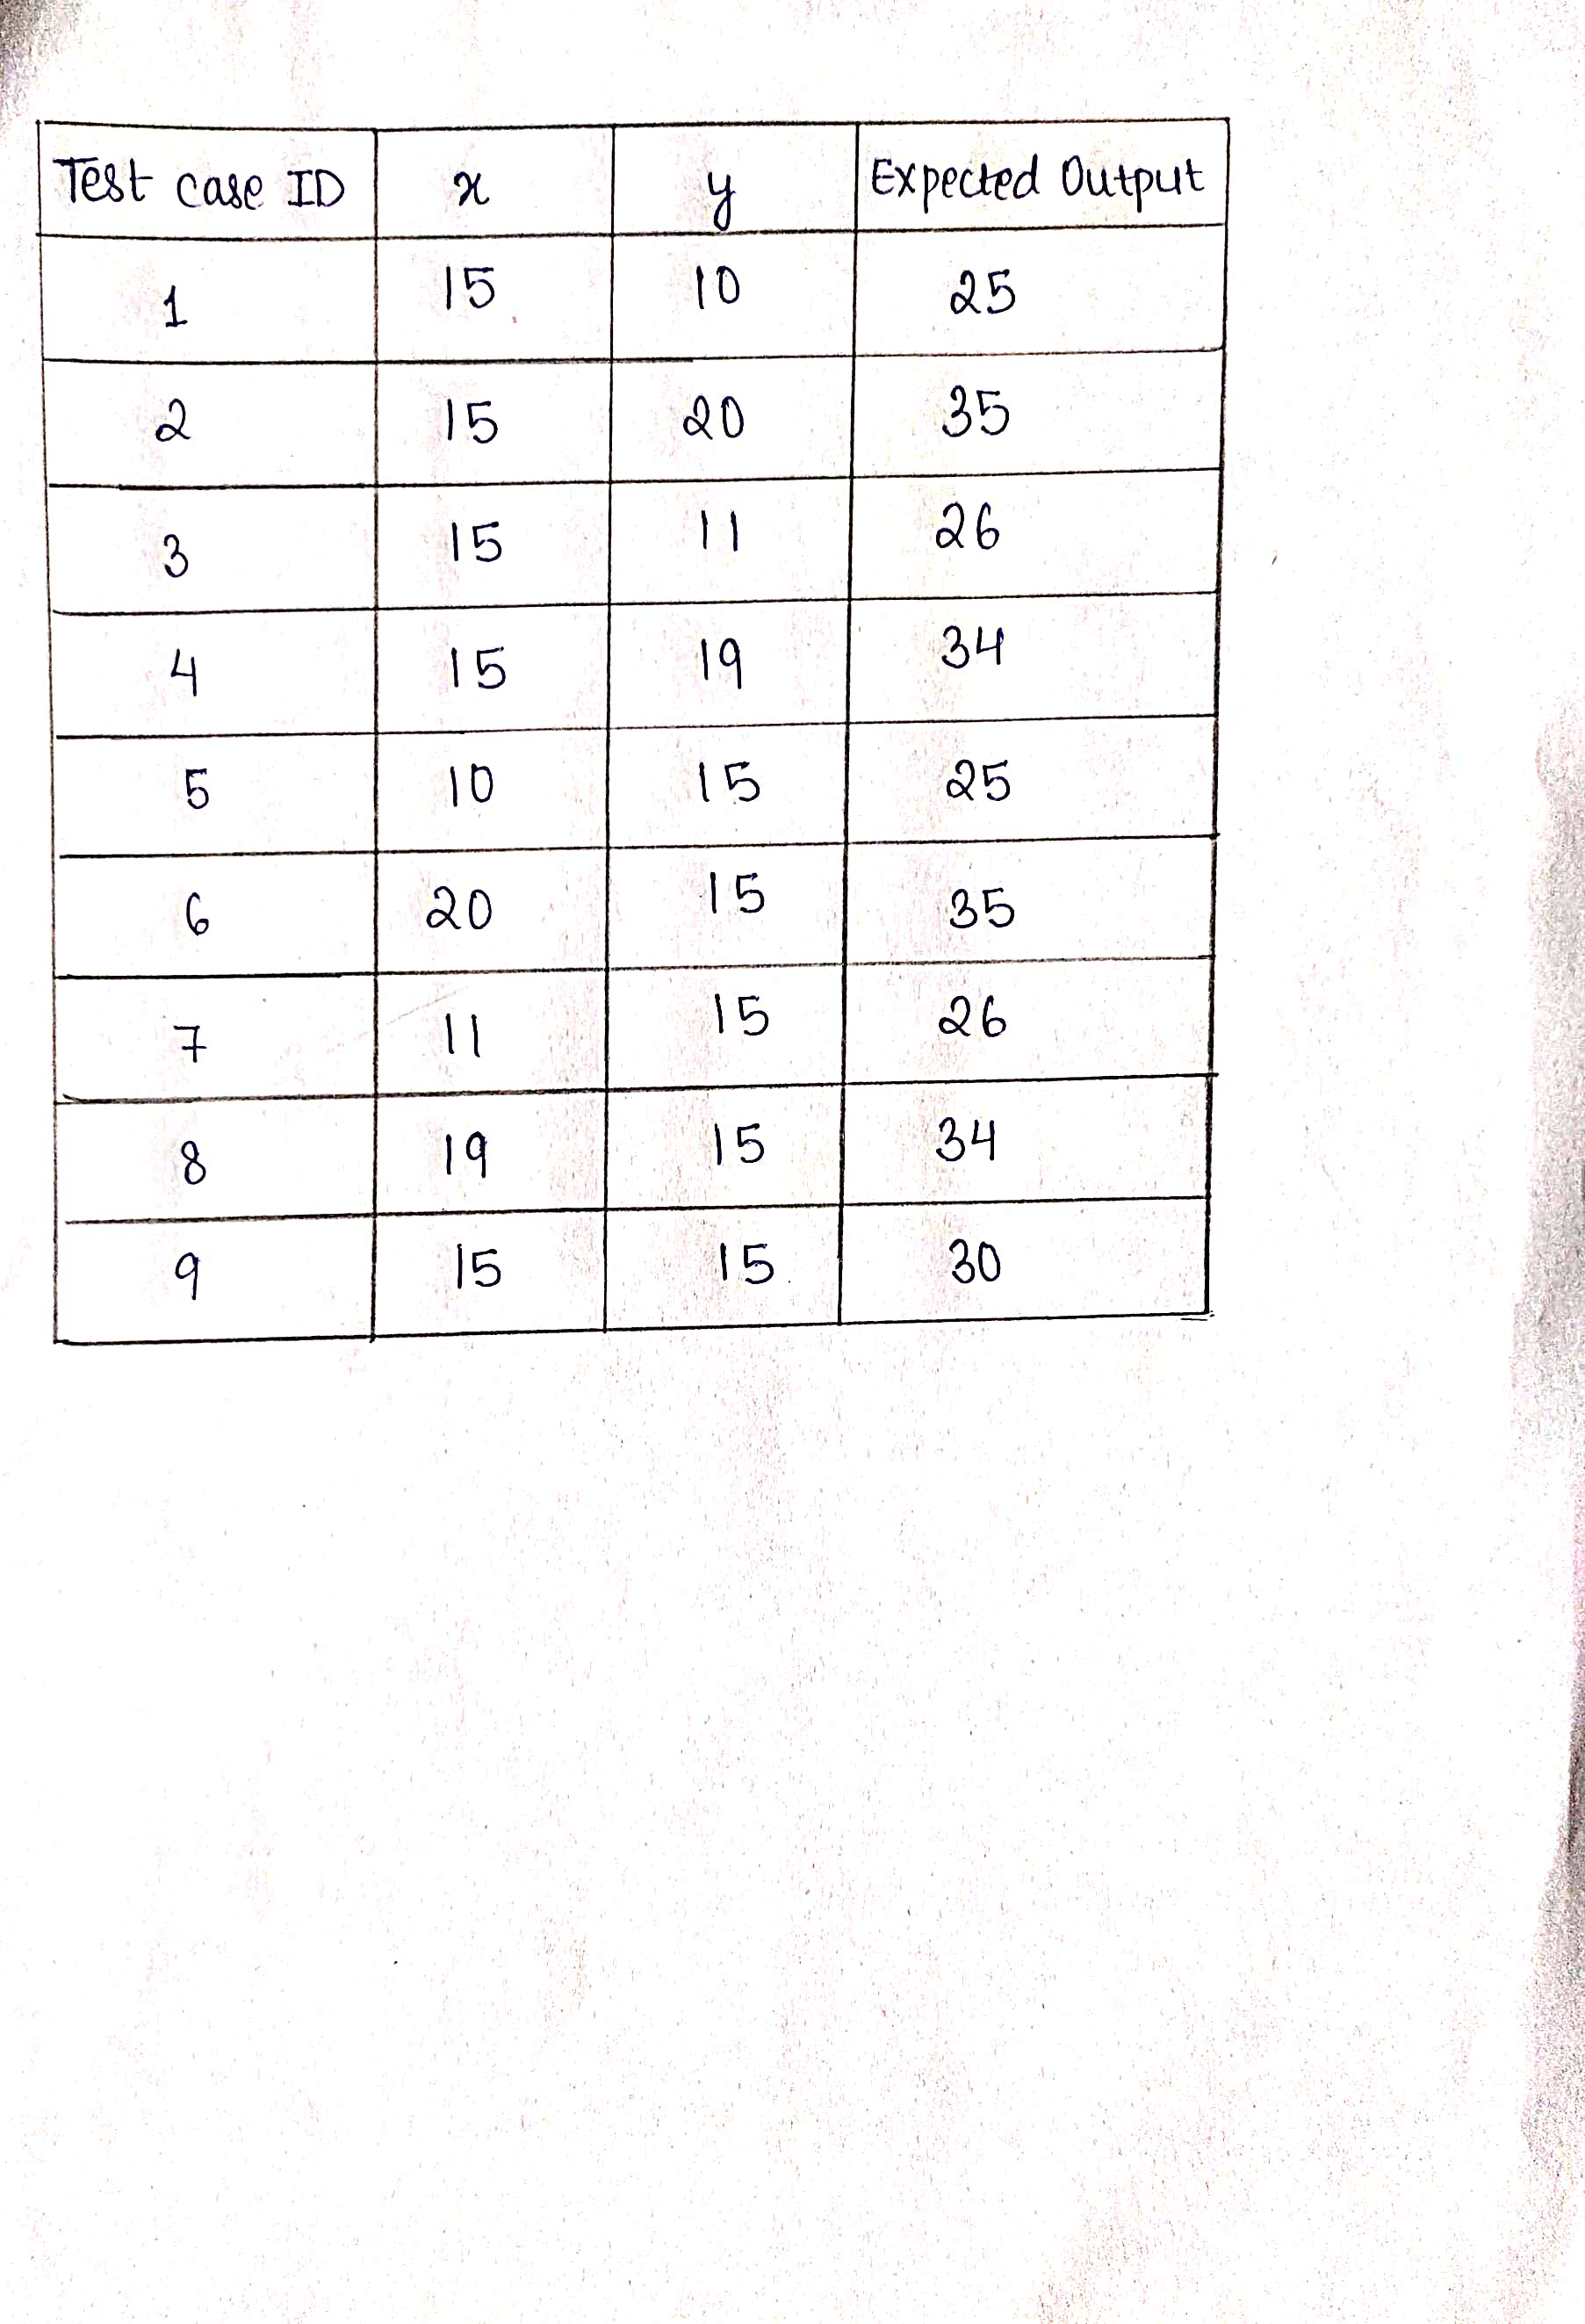 Test case ID x y Expected Output
1 15 10 25
2 15 20 35
3 15 11 26
4 15 19 34
5 10 15 25
6 20 15 35
7 11 15 26
8 19 15 34
9 15 15 30